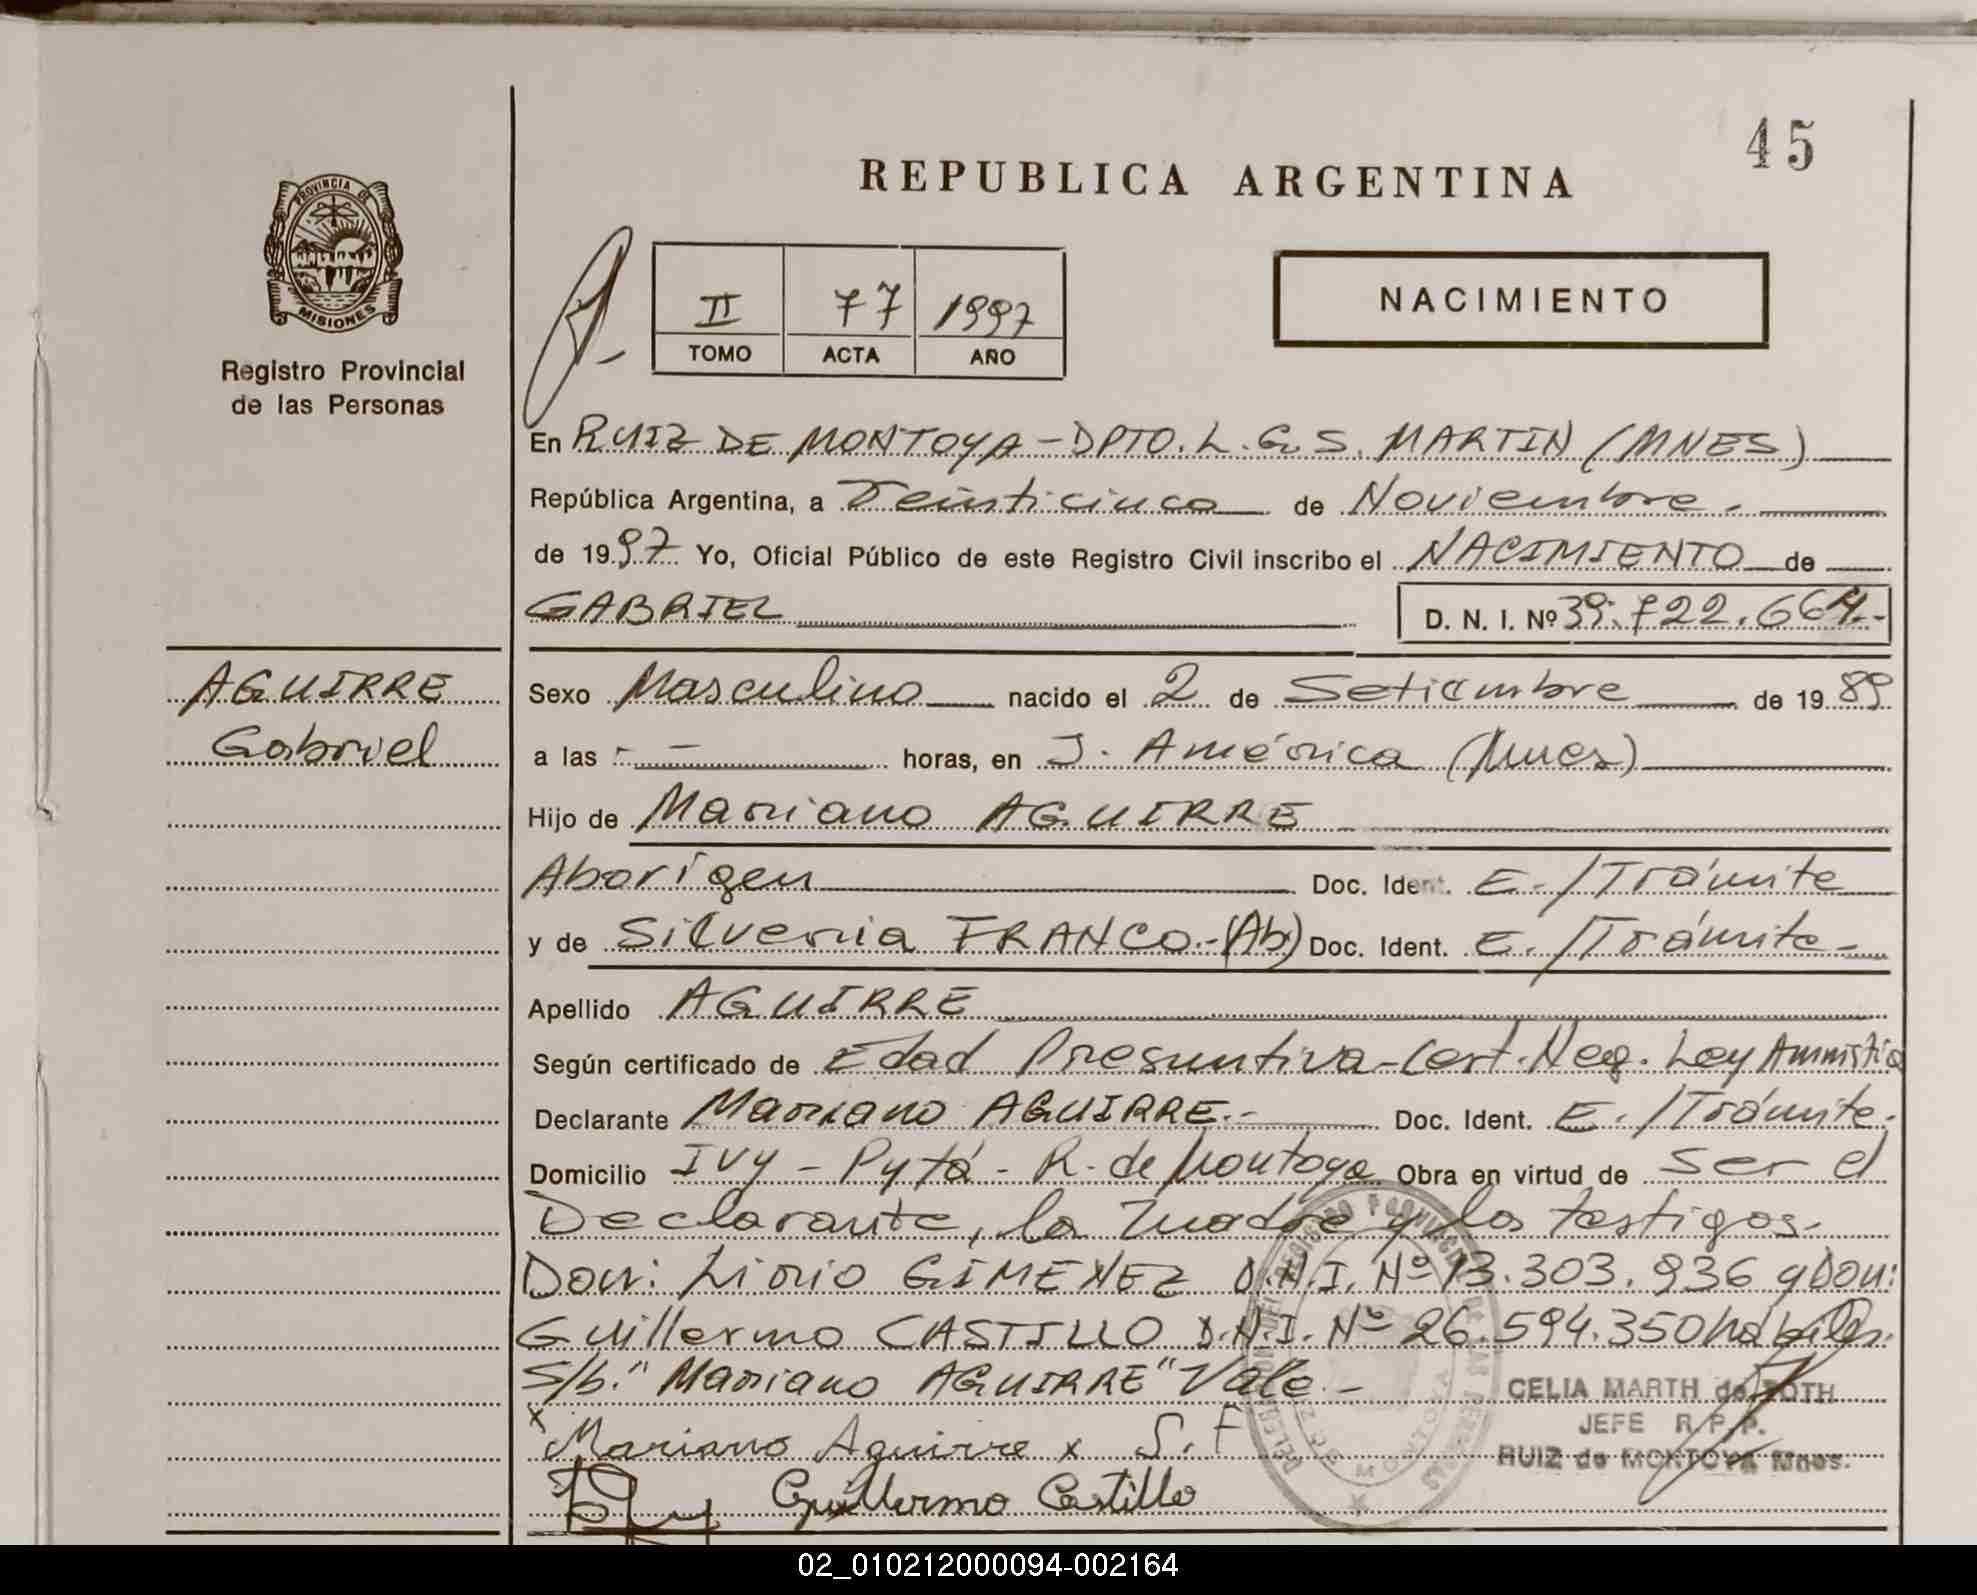 45
REPUBLICA ARGENTINA
PROVINCIA DE
MISIONES
Registro Provincial
de las Personas
II 77 1997
TOMO ACTA AÑO
NACIMIENTO
En RUIZ DE MONTOYA - DPTO. L. G. S. MARTIN (MNES)
República Argentina, a Veinticinco de Noviembre.
de 1997 Yo, Oficial Público de este Registro Civil inscribo el NACIMIENTO de
GABRIEL D. N. I. Nº 39.722.664.-
AGUIRRE
Gabriel
Sexo Masculino nacido el 2 de Setiembre de 1989
a las - - horas, en J. América (Mnes)
Hijo de Mariano AGUIRRE
Aborígen Doc. Ident. E./Trámite
y de Silveria FRANCO.-(Ab) Doc. Ident. E./Trámite-
Apellido AGUIRRE
Según certificado de Edad Presuntiva-Cert. Neg. Ley Amnistia
Declarante Mariano AGUIRRE.- Doc. Ident. E./Trámite.
Domicilio Ivy - Pytá - R. de Montoya Obra en virtud de ser el
Declarante, la madre y los testigos.
Don: Lirio GIMENEZ D.N.I. Nº 13.303.936 y Don:
Guillermo CASTILLO D.N.I. Nº 26.594.350 hábiles.
S/b." Mariano AGUIRRE" Vale.-
x Mariano Aguirre x S. F
Guillermo Castillo
CELIA MARTH de ROTH
JEFE R.P.P.
RUIZ de MONTOYA Mnes.
02_010212000094-002164